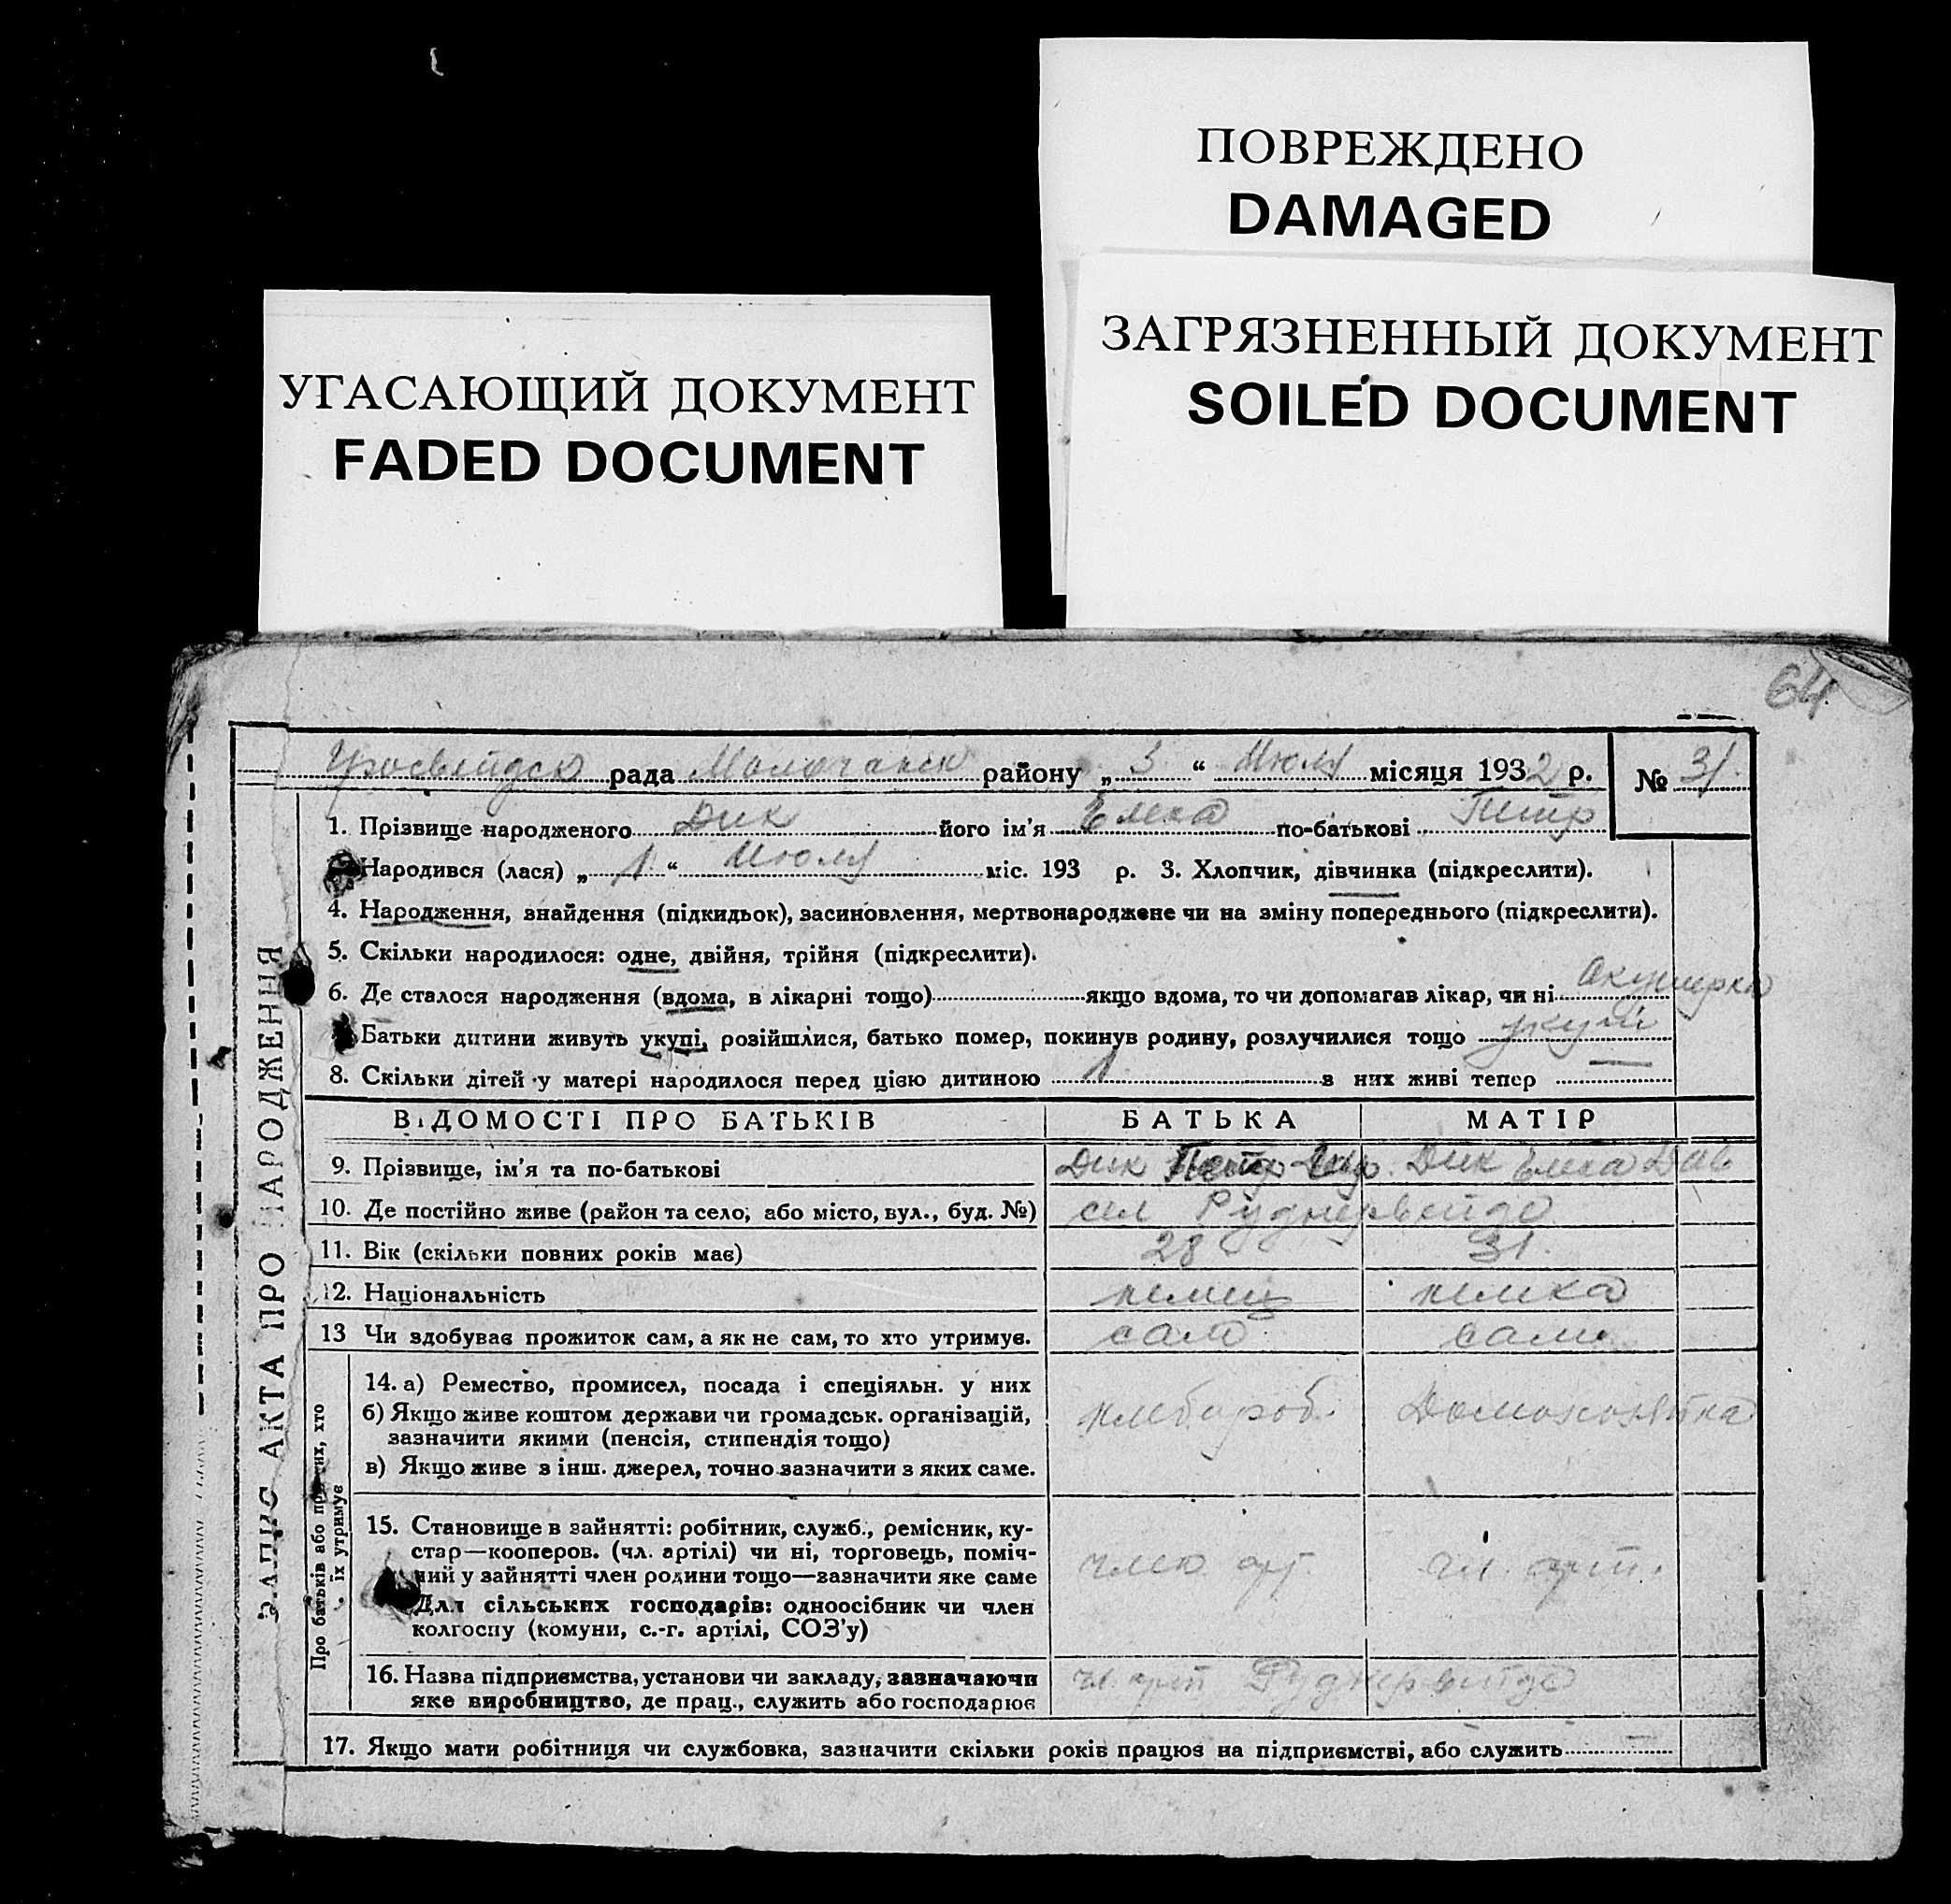 ПОВРЕЖДЕНО
DAMAGED
ЗАГРЯЗНЕННЫЙ ДОКУМЕНТ
SOILED DOCUMENT
УГАСАЮЩИЙ ДОКУМЕНТ
FADED DOCUMENT
64
рада Молочанск району „ 3 “ Июля місяця 1932 р. № 31
1. Прізвище народженого Дик його ім'я Елена по-батькові Петр
Народився (лася) „ 1 “ Июля міс. 193 р. 3. Хлопчик, дівчинка (підкреслити).
4. Народження, знайдення (підкидьок), засиновлення, мертвонароджене чи на зміну попереднього (підкреслити).
5. Скільки народилося: одне, двійня, трійня (підкреслити).
6. Де сталося народження (вдома, в лікарні тощо) якщо вдома, то чи допомагав лікар, чи ні акушерка
Батьки дитини живуть укупі, розійшлися, батько помер, покинув родину, розлучилися тощо укупі
8. Скільки дітей у матері народилося перед цією дитиною 1 з них живі тепер —
ВІДОМОСТІ ПРО БАТЬКІВ БАТЬКА МАТІР
9. Прізвище, ім'я та по-батькові Дик Петр Дик Елена Дав
10. Де постійно живе (район та село, або місто, вул., буд. №) сел Руднервейде
11. Вік (скільки повних років має) 28 31.
12. Національність немец немка
13 Чи здобував прожиток сам, а як не сам, то хто утримує. сам сама
14. а) Ремество, промисел, посада і спеціяльн. у них
б) Якщо живе коштом держави чи громадськ. організацій,
зазначити якими (пенсія, стипендія тощо)
хлебороб. Домохозяйка
в) Якщо живе з інш. джерел, точно зазначити з яких саме.
15. Становище в зайнятті: робітник, служб., ремісник, ку-
стар—кооперов. (чл. артілі) чи ні, торговець, поміч-
ний у зайнятті член родини тощо—зазначити яке саме
член арт. чл. арт.
Для сільських господарів: одноосібник чи член
колгоспу (комуни, с.-г. артілі, СОЗ'у)
16. Назва підприємства, установи чи закладу, зазначаючи
яке виробництво, де прац., служить або господарює
чл. арт Руднервейде
17. Якщо мати робітниця чи службовка, зазначити скільки років працює на підприємстві, або служить —
ЗАПИС АКТА ПРО НАРОДЖЕННЯ
Про батьків або про тих, хто
їх утримує